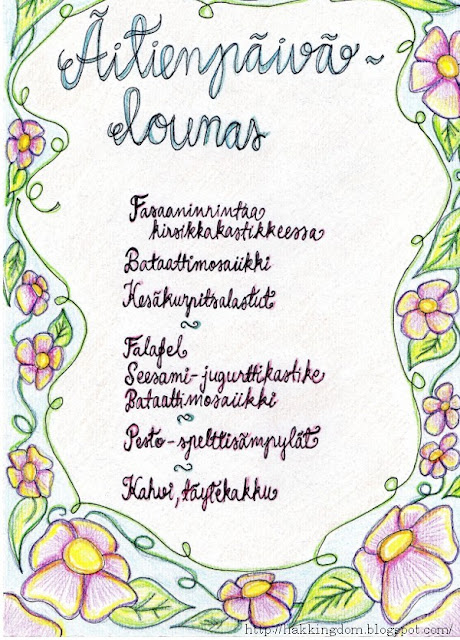 Äitienpäivä-
lounas
Fasaaninrintaa
kirsikkakastikkeessa
Bataattimosaiikki
Kesäkurpitsalastut
~
Falafel
Seesami-jugurttikastike
Bataattimosaiikki
~
Pesto-spelttisämpylät
~
Kahvi, täytekakku
http://hakkingdom.blogspot.com/